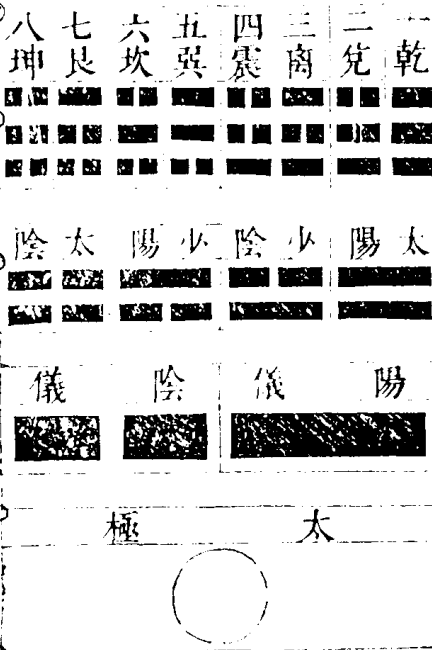 一乾
二兌
三离
四震
五巽
六坎
七艮
八坤
太陽 少陰 少陽 太陰
陽儀 陰儀
太極